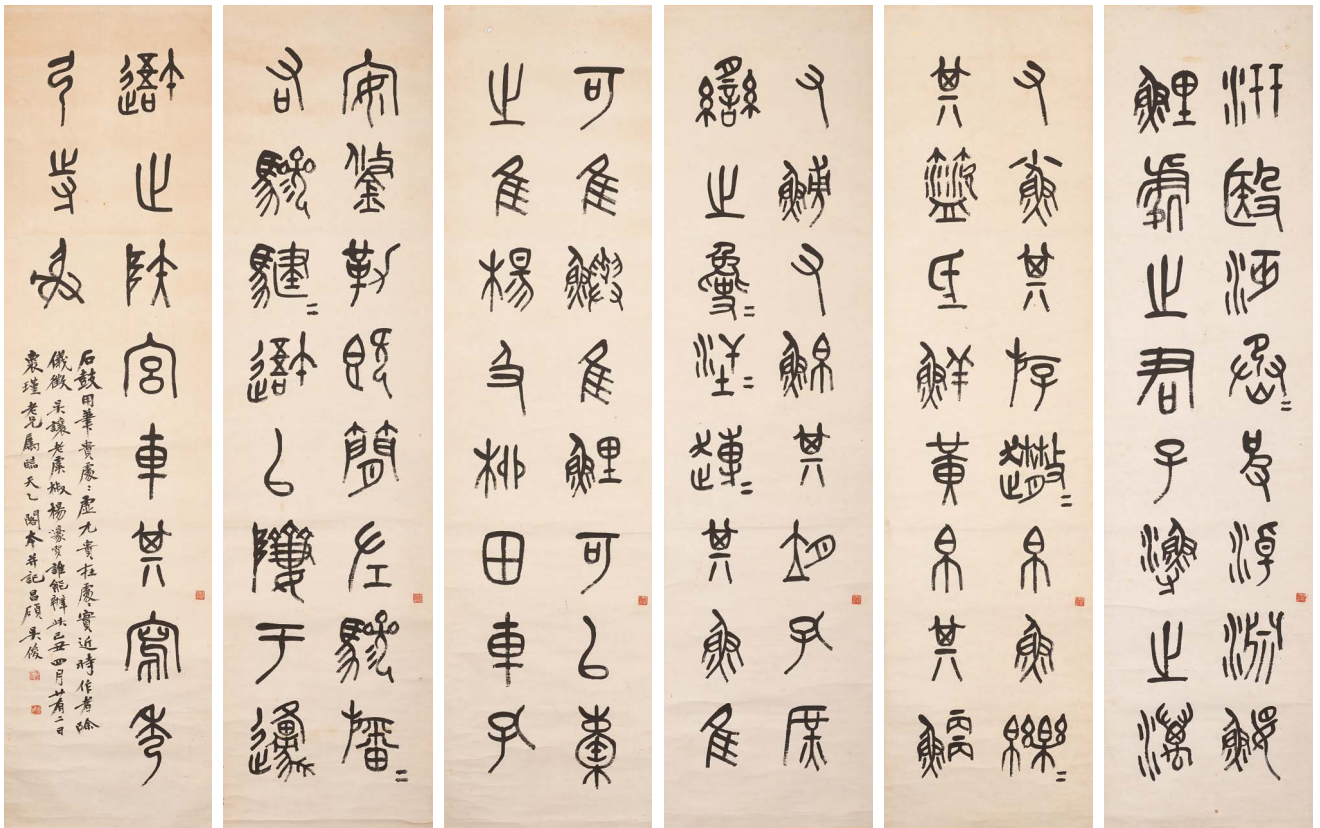 汧殹沔丞=皮淖淵鰋
鯉處之君子漁之澫
又鯊其斿趣=帛魚皪=
其盜氐鮮黃帛其鯿
又鯆又䱀其朔孔庶
臠之夒=汗=趁=其魚隹
可隹鱮隹鯉可以橐
之隹楊及柳田車孔
安鋚勒既簡左驂旛=
右驂騝=䢐以隮于邍
䢐止陝宮車其寫秀
弓寺射
石鼓用筆貴處=虛尤貴在處=實近時作者除
儀徵吳讓老虞椒楊濠叟誰能辦此己丑四月廿有二日
裹瑾老兄屬臨天乙閣本并記昌碩吳俊